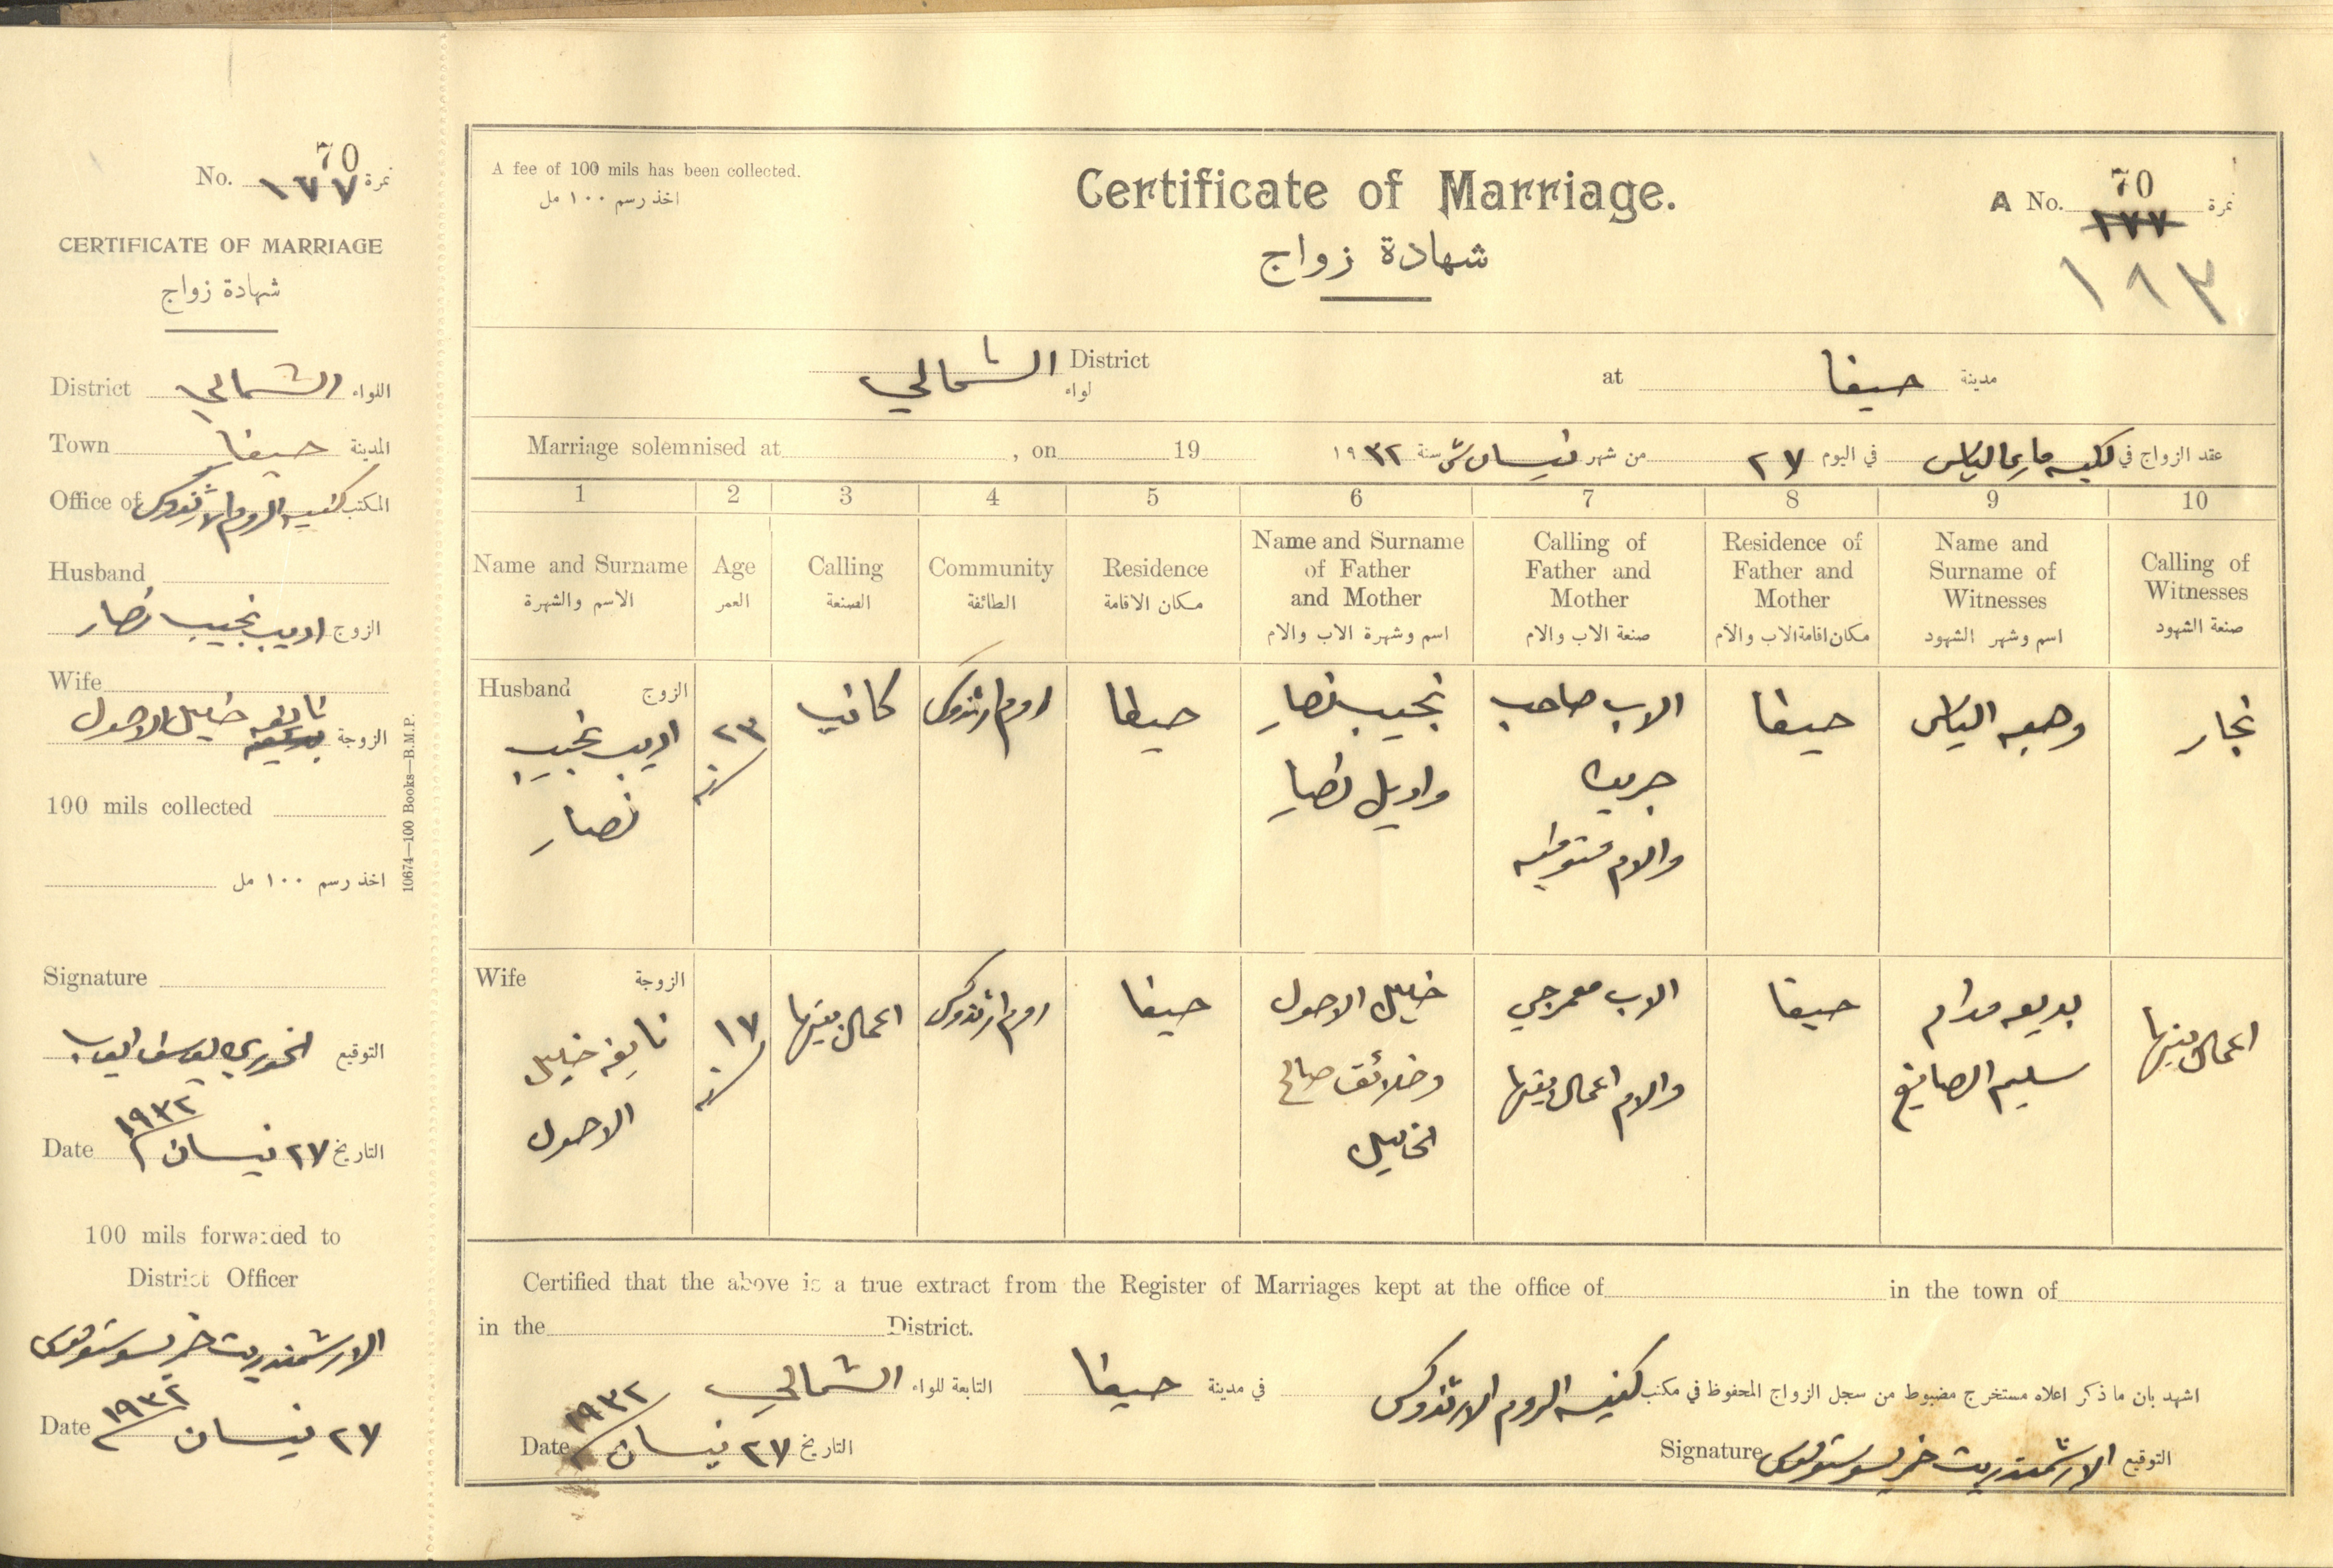 70
No. ١٧٧ نمرة
CERTIFICATE OF MARRIAGE
شهادة زواج
District الشمالي اللواء
Town حيفا المدينة
Office of كنيسة الروم الارثوذكس المكتب
Husband
الزوج اديب نجيب نصار
Wife
نايفه خليل الاحول
الزوجة
100 mils collected
اخذ رسم ١٠٠ مل
Signature
التوقيع الخوري يوسف
Date ٢٧ نيسان ١٩٣٢ التاريخ
100 mils forwarded to
District Officer
الارشمندريت
Date ٢٧ نيسان ١٩٣٢
10674—100 Books—B.M.P.
A fee of 100 mils has been collected.
اخذ رسم ١٠٠ مل
Certificate of Marriage.
شهادة زواج
70
A No. ١٧٧ نمرة
١٨٣
الشمالي District
لواء
at حيفا مدينة
Marriage solemnised at , on 19
عقد الزواج في كنيسة مار الياس في اليوم ٢٧ من شهر نيسان ش سنة ١٩٣٢
1 2 3 4 5 6 7 8 9 10
Name and Surname
الاسم والشهرة
Age
العمر
Calling
الصنعة
Community
الطائفة
Residence
مكان الاقامة
Name and Surname
of Father
and Mother
اسم وشهرة الاب والام
Calling of
Father and
Mother
صنعة الاب والام
Residence of
Father and
Mother
مكان اقامة الاب والام
Name and
Surname of
Witnesses
اسم وشهر الشهود
Calling of
Witnesses
صنعة الشهود
Husband الزوج
اديب نجيب
نصار
٢٣
سنه
كاتب
روم ارثوذكس
حيفا
نجيب نصار
واديل نصار
الاب صاحب
جريدة
والام متوفيه
حيفا
وهبه الياس
نجار
Wife الزوجة
نايفه خليل
الاحول
١٧
سنه
اعمال بيتها
روم ارثوذكس
حيفا
خليل الاحول
صالح
الخليل
الاب معمرجي
والام اعمال بيتها
حيفا
بديعه مدام
سليم الصايغ
اعمال بيتها
Certified that the above is a true extract from the Register of Marriages kept at the office of in the town of
in the District.
اشهد بان ما ذكر اعلاه مستخرج مضبوط من سجل الزواج المحفوظ في مكتب كنيسة الروم الارثوذكس في مدينة حيفا التابعة للواء الشمالي
Date ٢٧ نيسان ١٩٣٢ التاريخ
Signature الارشمندريت التوقيع